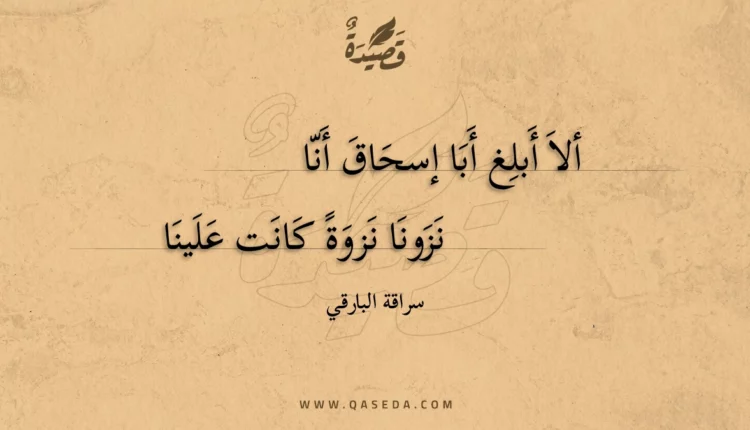 قَصِيْدَةٌ
ألاَ أَبلِغ أَبَا إسحَاقَ أَنّا
نَزَونَا نَزوَةً كَانَت عَلَينَا
سراقة البارقي
WWW.QASEDA.COM